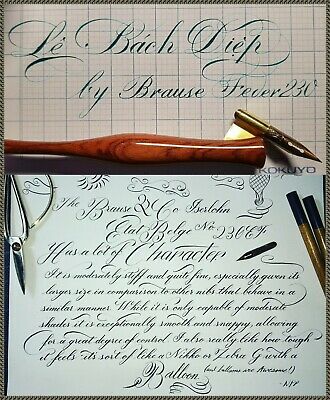 Lê Bách Diệp
by Brause Feder 230
KOKUYO
The Brause & Co Iserlohn
Etat Belge No 230 EF
Has a lot of Character
It is moderately stiff and quite fine, especially given its
larger size in comparison to other nibs that behave in a
similar manner. While it is only capable of moderate
shades it is exceptionally smooth and snappy, allowing
for a great degree of control. I also really like how tough
it feels its sort of like a Nikko or Zebra G with a
Balloon (and balloons are Awesome!)